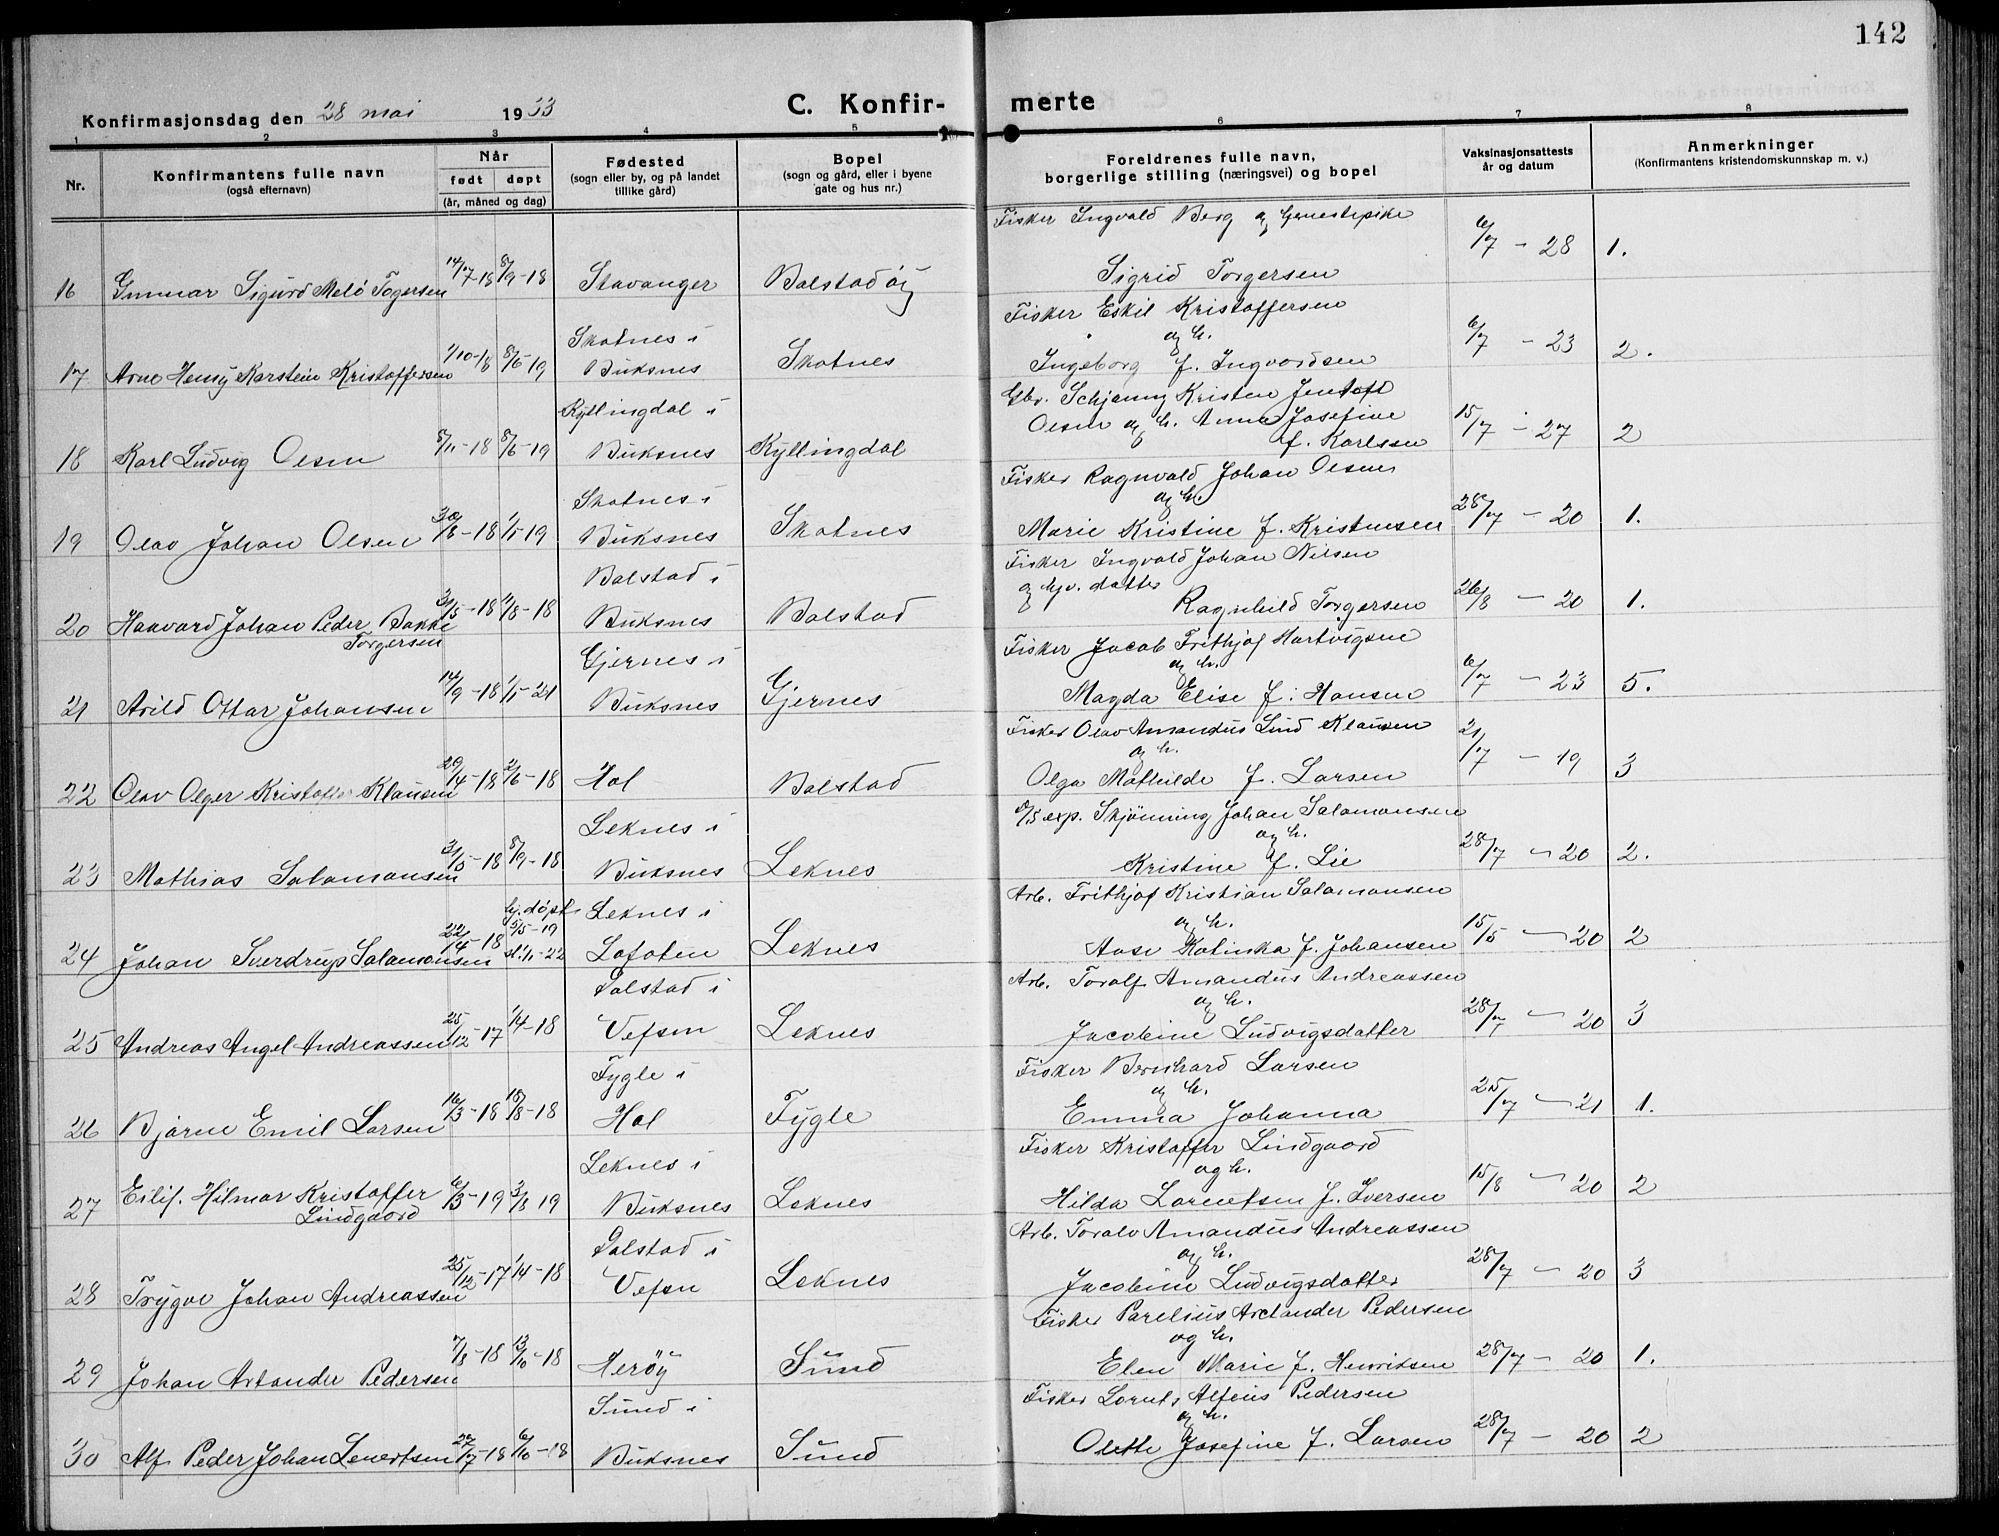 142
Konfirmasjonsdag den 28 mai 1933
C. Konfirmerte
1 2 3 4 5 6 7 8
Nr. Konfirmantens fulle navn (også efternavn) Når født døpt (år, måned og dag) Fødested (sogn eller by, og på landet tillike gård) Bopel (sogn og gård, eller i byene gate og hus nr.) Foreldrenes fulle navn, borgerlige stilling (næringsvei) og bopel Vaksinasjonsattests år og datum Anmerkninger (Konfirmantens kristendomskunnskap m. v.)
Fisker Ingvald Berg og
16 Gunnar Sigurd Melö Togersen 14/7-18 8/9-18 Stavanger Balstadöy Sigrid Torgersen 6/7 - 28 1.
Skotnes i Fisker Eskil Kristoffersen
og h.
17 Arne Henry Karstein Kristoffersen 1/10-18 8/6-19 Buksnes Skotnes Ingeborg f. Ingvardsen 6/7 - 23 2.
Kyllingdal i Gbr. Schjønning Kristen Jentoft
Olsen og h. Anna Josefine
18 Karl Ludvig Olsen 8/11-18 8/6-19 Buksnes Kyllingdal f. Karlssen 15/7 - 27 2
Skotnes i Fisker Ragnvald Johan Olsen
og h.
19 Olav Johan Olsen 30/8-18 1/5-19 Buksnes Skotnes Marie Kristine f. Kristensen 28/7 - 20 1.
Balstad i Fisker Ingvald Johan Nilsen
og hjv. datter
20 Haavard Johan Peder Bakke Torgersen 31/5-18 11/8-18 Buksnes Balstad Ragnhild Torgersen 26/8 - 20 1.
Gjernes i Fisker Jacob Frithjof Hartvigsen
og h.
21 Arild Ottar Johansen 14/9-18 1/5-21 Buksnes Gjernes Magda Elise f. Hansen 6/7 - 23 5.
Fisker Olav Amandus Lind Klausen
og h.
22 Olav Olger Kristoffer Klausen 29/4-18 2/6-18 Hol Balstad Olga Mathilde f. Larsen 21/7 - 19 3
Leknes i D/S exp. Skjønning Johan Salamonsen
og h.
23 Mathias Salamonsen 31/5-18 8/9-18 Buksnes Leknes Kristine f. Lie 28/7 - 20 2.
hj. döpt Leknes i Arb. Frithjof Kristian Salamonsen
5/5-19 og h.
24 Johan Sverdrup Salamonsen 22/4-18 st. 1/1-22 Lofoten Leknes Aase Katinka f. Johansen 15/5 - 20 2
Dalstad i Arb. Toralf Amandus Andreassen
og h.
25 Andreas Angel Andreassen 25/12-17 1/4-18 Vefsn Leknes Jacobine Ludvigsdatter 28/7 - 20 3
Fygle i Fisker Bernhard Larsen
og h.
26 Bjarne Emil Larsen 16/3-18 18/8-18 Hol Fygle Emma Johanna 25/7 - 21 1.
Leknes i Fisker Kristoffer Lindgaard
og h.
27 Eilif. Hilmar Kristoffer Lindgaard 6/3-19 3/8 19 Buksnes Leknes Hilda Lorentsen f. Iversen 15/8 - 20 2
Dalstad i Arb. Toralv Amandus Andreassen
og h.
28 Trygve Johan Andreassen 25/12-17 1/4-18 Vefsn Leknes Jacobine Ludvigsdatter 28/7 - 20 3
Fisker Parelius Arctander Pedersen
og h.
29 Johan Artander Pedersen 7/8-18 13/10-18 Heröy Sund Elen Marie f. Henriksen 28/7 - 20 1.
Sund i Fisker Lornts Alfeus Pedersen
og h.
30 Alf Peder Johan Lenertsen 27/7-18 6/10-18 Buksnes Sund Olette Josefine f. Larsen 28/7 - 20 2